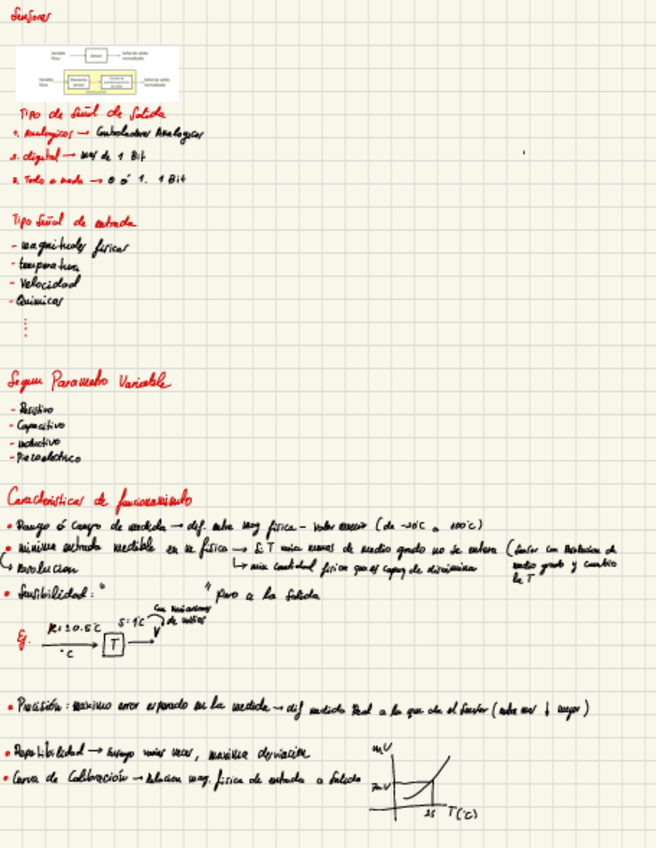 Sensores
Variable física
Sensor
Señal de salida normalizada
Variable física
Elemento sensor
Señal de salida normalizada
Tipo de Señal de Salida
1. Analogicos → Controladores Analogicos
2. digital → mas de 1 Bit
3. Todo o nada → 0 ó 1. 1 Bit
Tipo Señal de entrada
- magnitudes fisicas
- temperatura
- Velocidad
- Quimicos
Segun Parametro Variable
- Resistivo
- Capacitivo
- inductivo
- Piezoelectrico
Caracteristicas de funcionamiento
• Rango ó Campo de medida → dif. entre mag fisica - valor (de -20°C a 100°C)
• minima entrada medible en m. fisica → S. T mia menos de medio grado no se entera (Sensor con Resolucion de
medio grado y cambio
la T
↳ Resolucion
↳ min cantidad fisica que es capaz de discriminar
• Sensibilidad: " " pero a la Salida
Eg.
R: ±0.5°C
°C
T
S: 1°C
V
• Precisión: maximo error esperado en la medida → dif medida Real a la que da el Sensor (entre mas ↓ mejor)
• Repetibilidad → varias veces, maxima desviacion
• Curva de Calibración → Relacion mag. fisica de entrada a Salida
mV
2mV
25
T(°C)